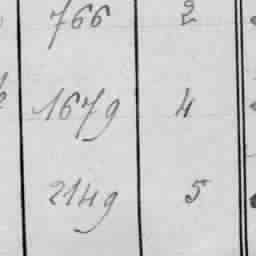 766 2
1679 4
2149 5